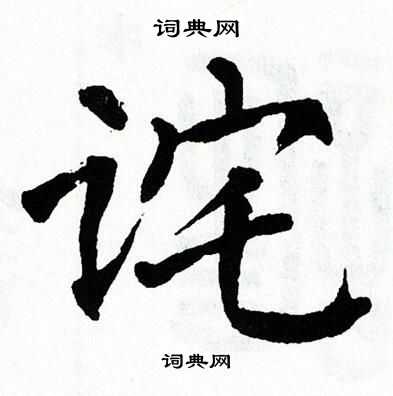 词典网
诧
词典网